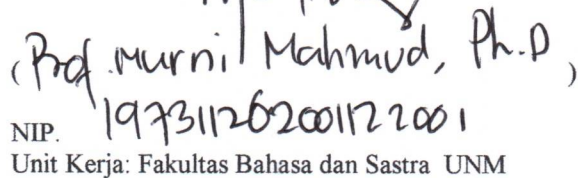 (Prof. Murni Mahmud, Ph.D)
NIP. 197311262001122001
Unit Kerja: Fakultas Bahasa dan Sastra UNM